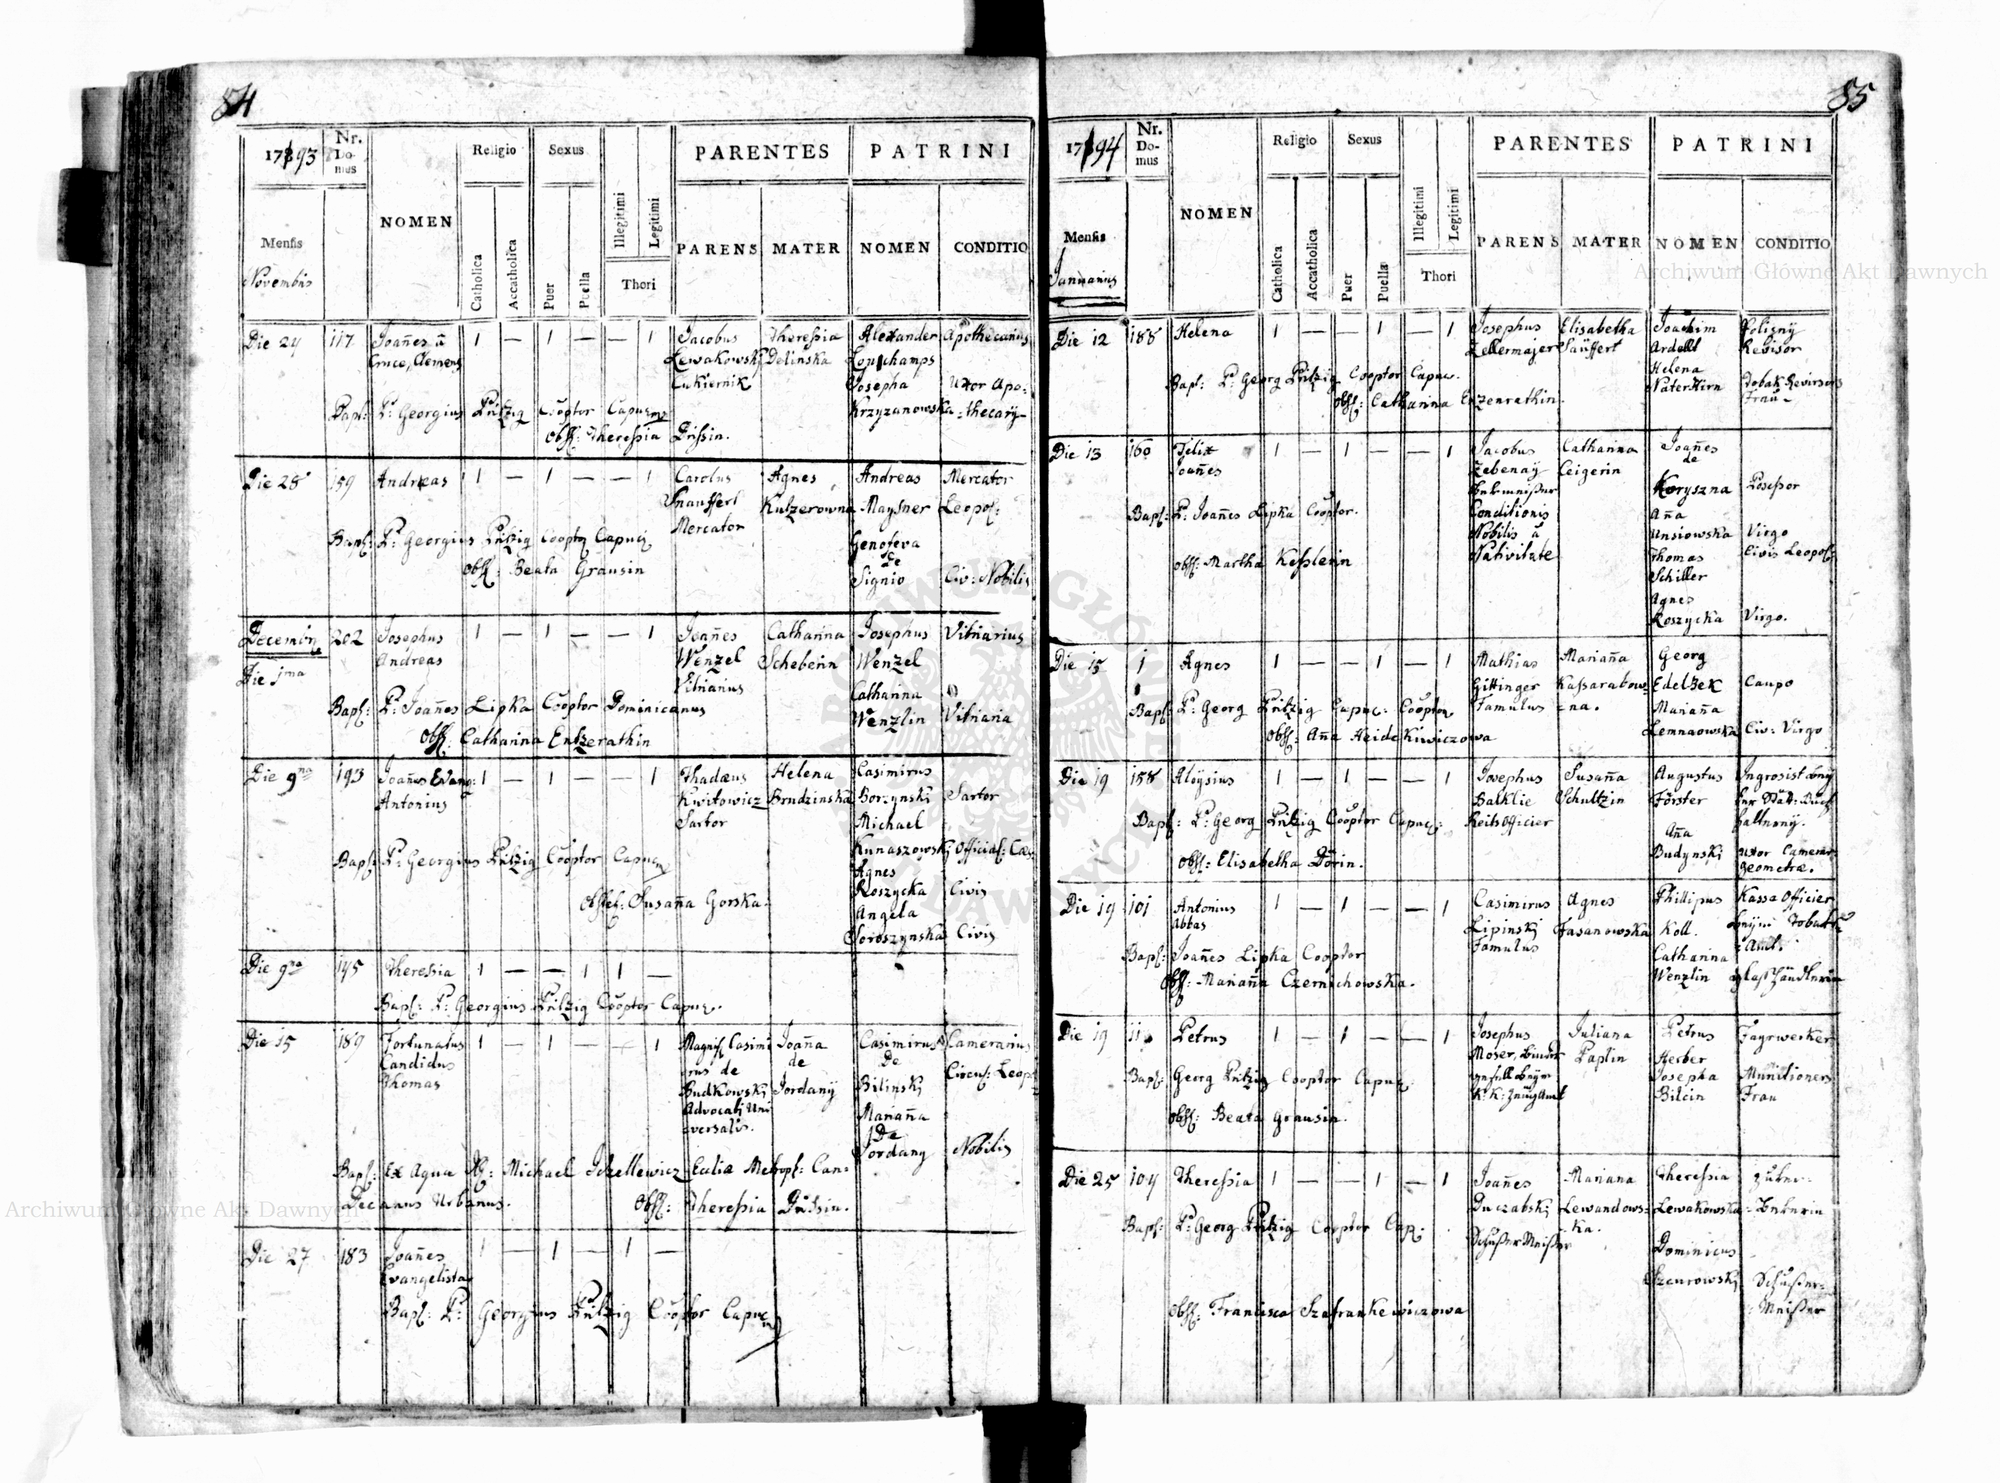 84
1793
Nr. Domus
NOMEN
Religio
Sexus
Illegitimi
Legitimi
PARENTES
PATRINI
Mensis
Novembris
Catholica
Accatholica
Puer
Puella
Thori
PARENS
MATER
NOMEN
CONDITIO
Die 24 117 Joañes à 1 — 1 — — 1 Jacobus Theresia Alexander Apothecarius
Cruce, Clemens Lewakowski Delinska Lonschamps
Cukiernik Josepha Uxor Apo:
Bapt: P: Georgius Pritzig Cooptor Capuc: Krzyzanowska :thecarÿ
Obst: Theresia Prissin.
Die 28 159 Andreas 1 — 1 — — 1 Carolus Agnes Andreas Mercator
Knauffert Kutzerowna Maysner Leopol:
Mercator
Bapt: P: Georgius Pritzig Cooptor Capuc: Genofeva
Obst: Beata Grausin de
Signio Civ: Nobilis
Decembris 202 Josephus 1 — 1 — — 1 Joañes Catharina Josephus Vitriarius
Die 1ma Andreas Wenzel Scheberin Wenzel
Vitriarius
Bapt: P: Joañes Lipka Cooptor Dominicanus Catharina
Wenzlin Vitriaria
Obst: Catharina Entzerathin
Die 9na 193 Joañes Evang: 1 — 1 — — 1 Thadæus Helena Casimirus
Antonius Kwitowicz Brudzinska Borzynski Sartor
Sartor Michael
Bapt: P: Georgius Pritzig Cooptor Capuc: Kunaszowski Official: Cæs:
Agnes
Obstet: Susaña Gorska. Roszycka Civis
Angela
Soroszynska Civis
Die 9na 145 Theresia 1 — — 1 1 —
Bapt: P: Georgius Pritzig Cooptor Capuc.
Die 15 189 Fortunatus 1 — 1 — — 1 Magnif: Casimi Joaña Casimirus Camerarius
Candidus rus de de De Circul: Leopol
Thomas Budkowski Jordanÿ Bilinski
Advocati Uni Mariaña
versalis. De
Jordany Nobilis
Bapt: Ex Aqua Michael Eccliæ Metropl: Can:
Decanus Urbanus. Obst: Theresia Prissin.
Die 27 183 Joañes 1 — 1 — 1 —
Evangelista
Bapt: P: Georgius Pritzig Cooptor Capuc:
85
1794
Nr. Domus
NOMEN
Religio
Sexus
Illegitimi
Legitimi
PARENTES
PATRINI
Mensis
Januarius
Catholica
Accatholica
Puer
Puella
Thori
PARENS
MATER
NOMEN
CONDITIO
Die 12 188 Helena 1 — — 1 — 1 Josephus Elisabetha Joachim Polizeÿ
Zellermajer Säuffert Ardellt Revisor
Helena
Bapt: P: Georg Pritzig Cooptor Capuc. Naterstirn Tobak Revisors
Obst: Catharina Enzenrathin. Frau
Die 13 160 Felix 1 — 1 — — 1 Jacobus Catharina Joañes
Joañes Zebenaÿ Ceigerin de
Koryszna Possessor
Conditionis Aña
Bapt: P: Joañes Lipka Cooptor. Nobilis à Unsiowska Virgo
Nativitate Thomas Civis Leopol:
Obst: Martha Kesslerin Schiller
Agnes
Roszycka Virgo.
Die 15 1 Agnes 1 — — 1 — 1 Mathias Mariaña Georg
Gittinger Kassarabow: Edelbek Caupo
Bapt: P: Georg Pritzig Capuc: Cooptor Famulus :na. Mariaña
Obst: Aña Heidekiewiczowa Lemnaowska Civ: Virgo
Die 19 158 Aloÿsius 1 — 1 — — 1 Josephus Susaña Augustus Ingrosist
Balklie Schultzin Förster
Bapt: P: Georg Pritzig Cooptor Capuc: Reits officier
Aña
Obst: Elisabetha Dörin. Budynski Uxor Camerar:
Geometræ.
Die 19 101 Antonius 1 — 1 — — 1 Casimirus Agnes Phillipus Kassa Officier
Abbas Lipinski Fasanowska Koll. Tobak
Famulus Amt.
Bapt: Joañes Lipka Cooptor Catharina
Obst: Mariaña Czernichowska. Wenzlin
Die 19 11 Petrus 1 — 1 — — 1 Josephus Juliana Petrus Fayrwerker
Moser, Paplin Herber
Bapt: Georg Pritzig Cooptor Capuc: Josepha Munitioners
Bilcin Frau
Obst: Beata Grausin.
Die 25 104 Theresia 1 — — 1 — 1 Joañes Mariana Theresia
Duczabski Lewandows: Lewakowska
Bapt: P: Georg Pritzig Cooptor Cap: ka.
Schuster Meister Dominicus
Szenrowski Schuster:
:Meister
Obst: Francisca Szafrankiewiczowa
Archiwum Główne Akt Dawnych
Archiwum Główne Akt Dawnych
ARCHIWUM GŁÓWNE AKT DAWNYCH